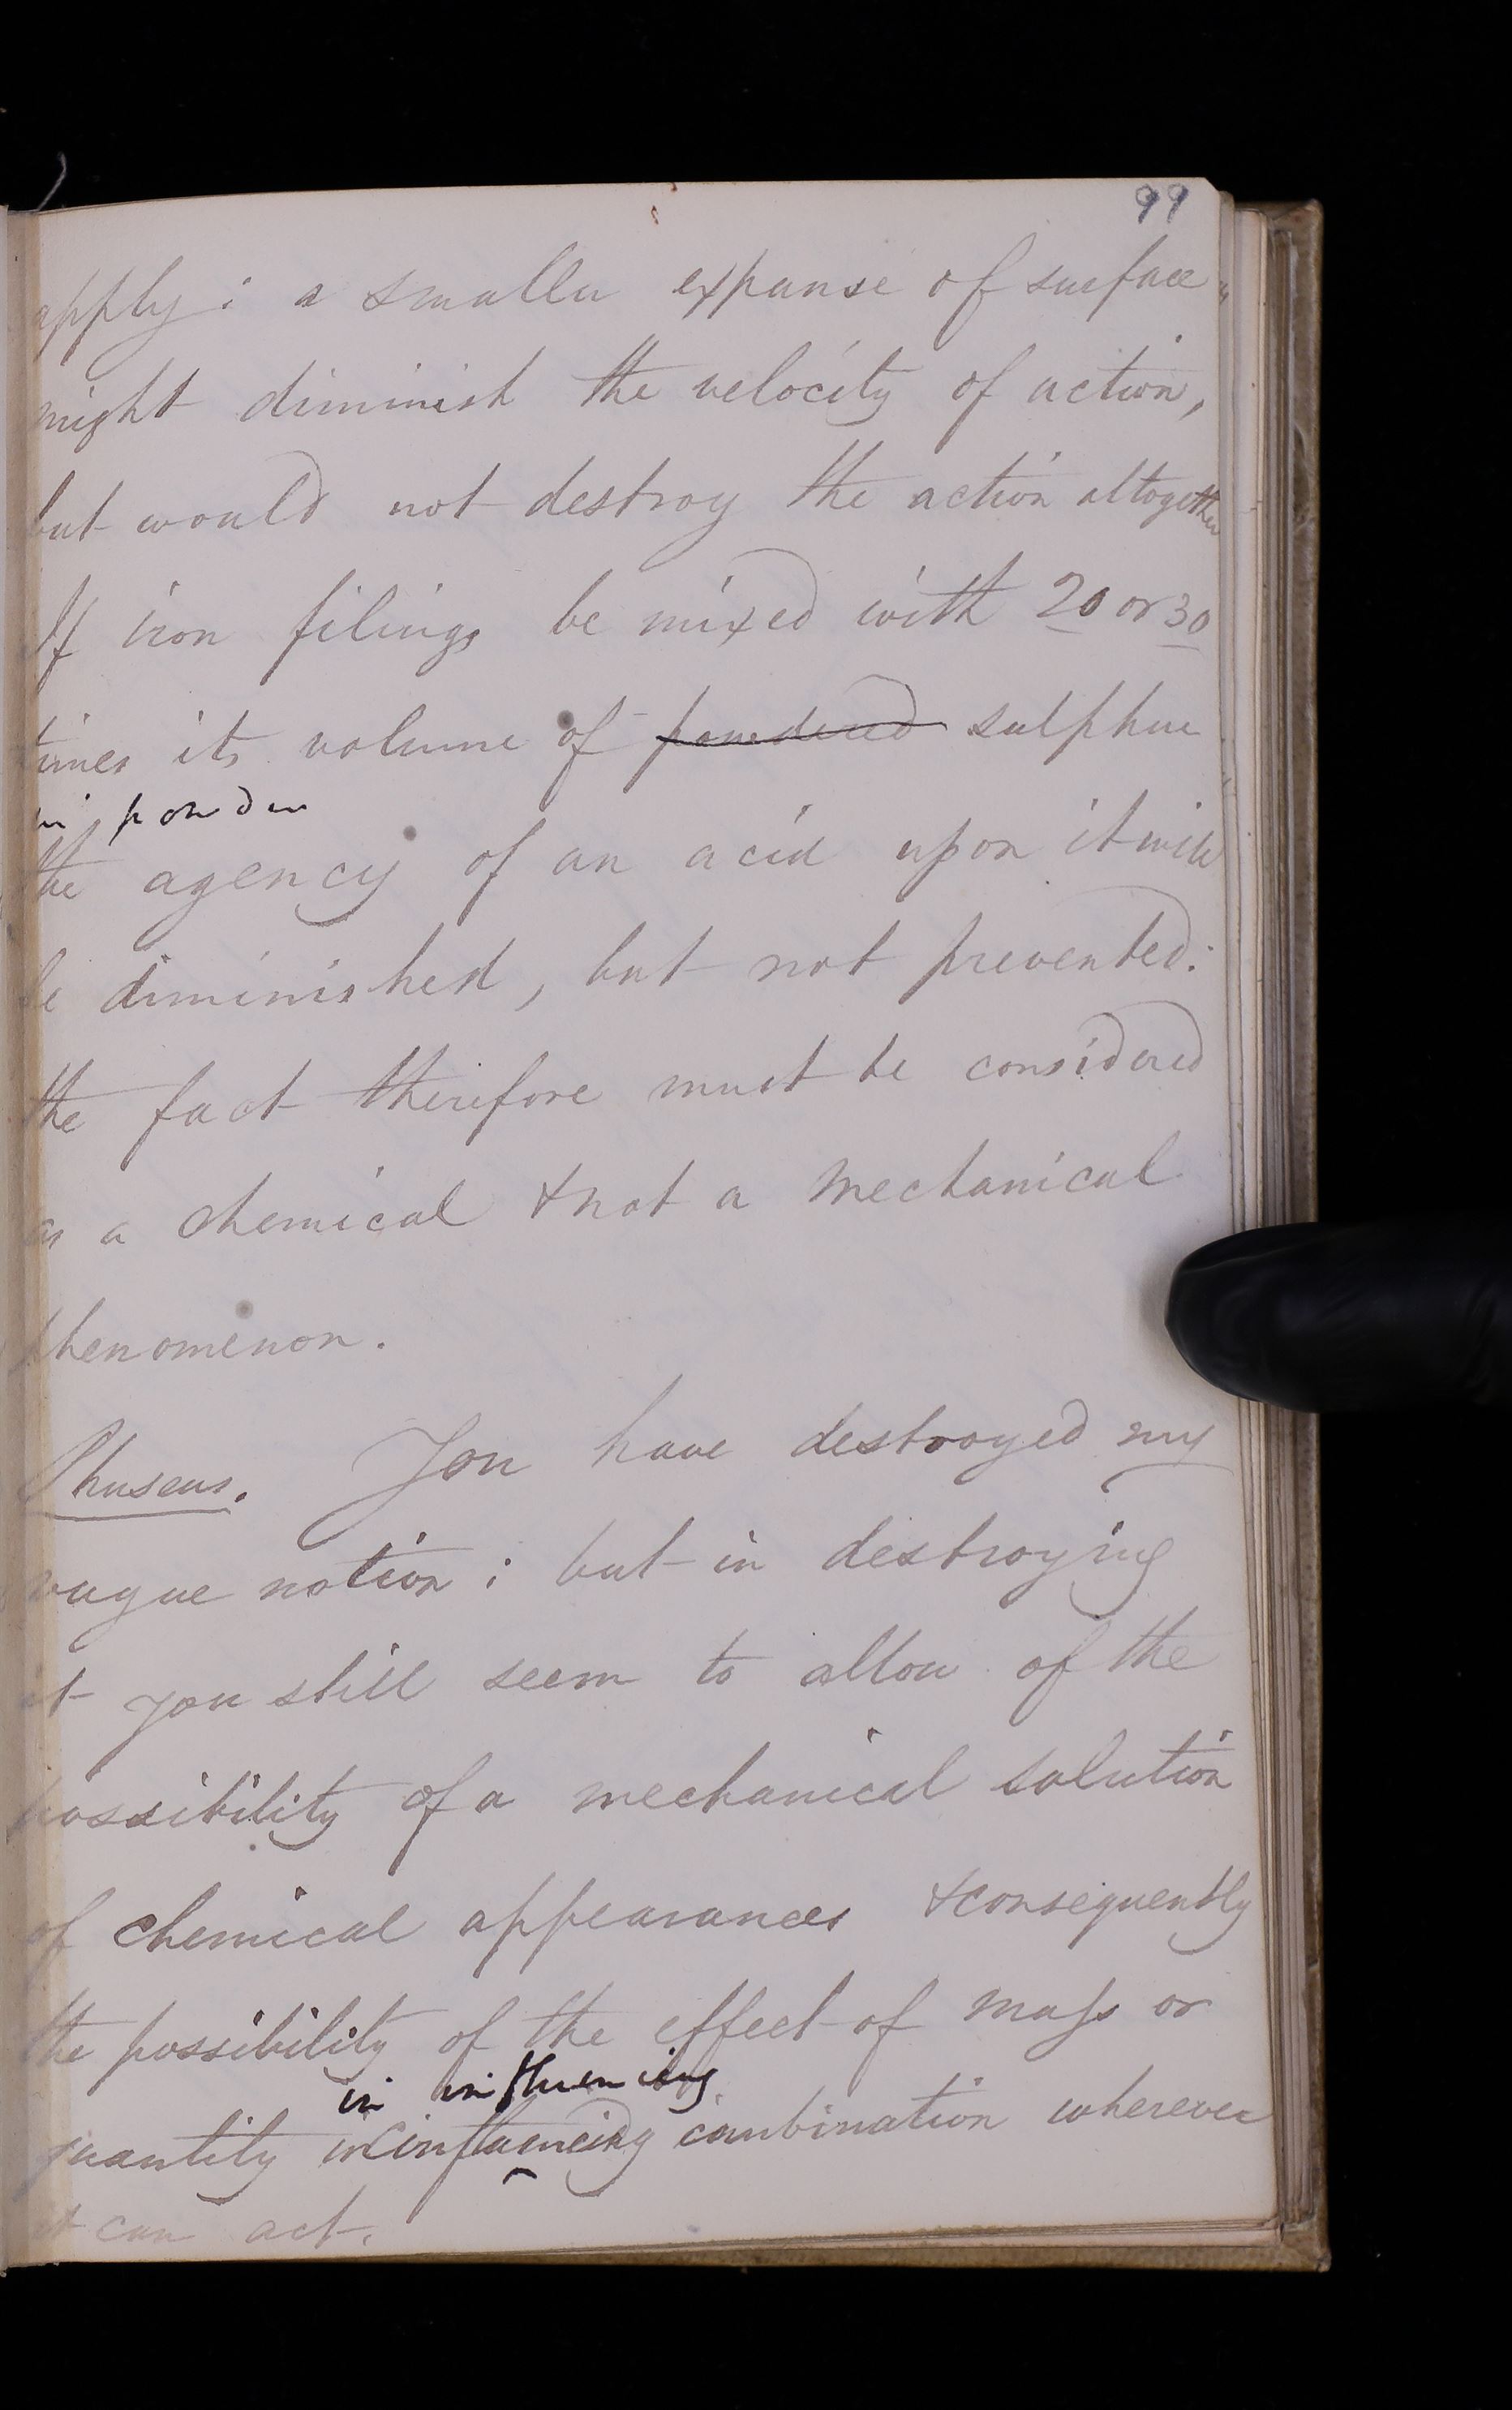 99
apply: a smaller expanse of surface
might diminish the velocity of action,
but would not destroy the action altogether
If iron filings be mixed with 20 or 30
times its volume of powdered sulphur
in powder
the agency of an acid upon it will
be diminished, but not prevented:
the fact therefore must be considered
as a chemical & not a mechanical
phenomenon.
Phuseus. You have destroyed my
vague notion; but in destroying
it you still seem to allow of the
possibility of a mechanical solution
of chemical appearances & consequently
the possibility of the effect of mass or
in influencing
quantity in influencing combination wherever
it can act.